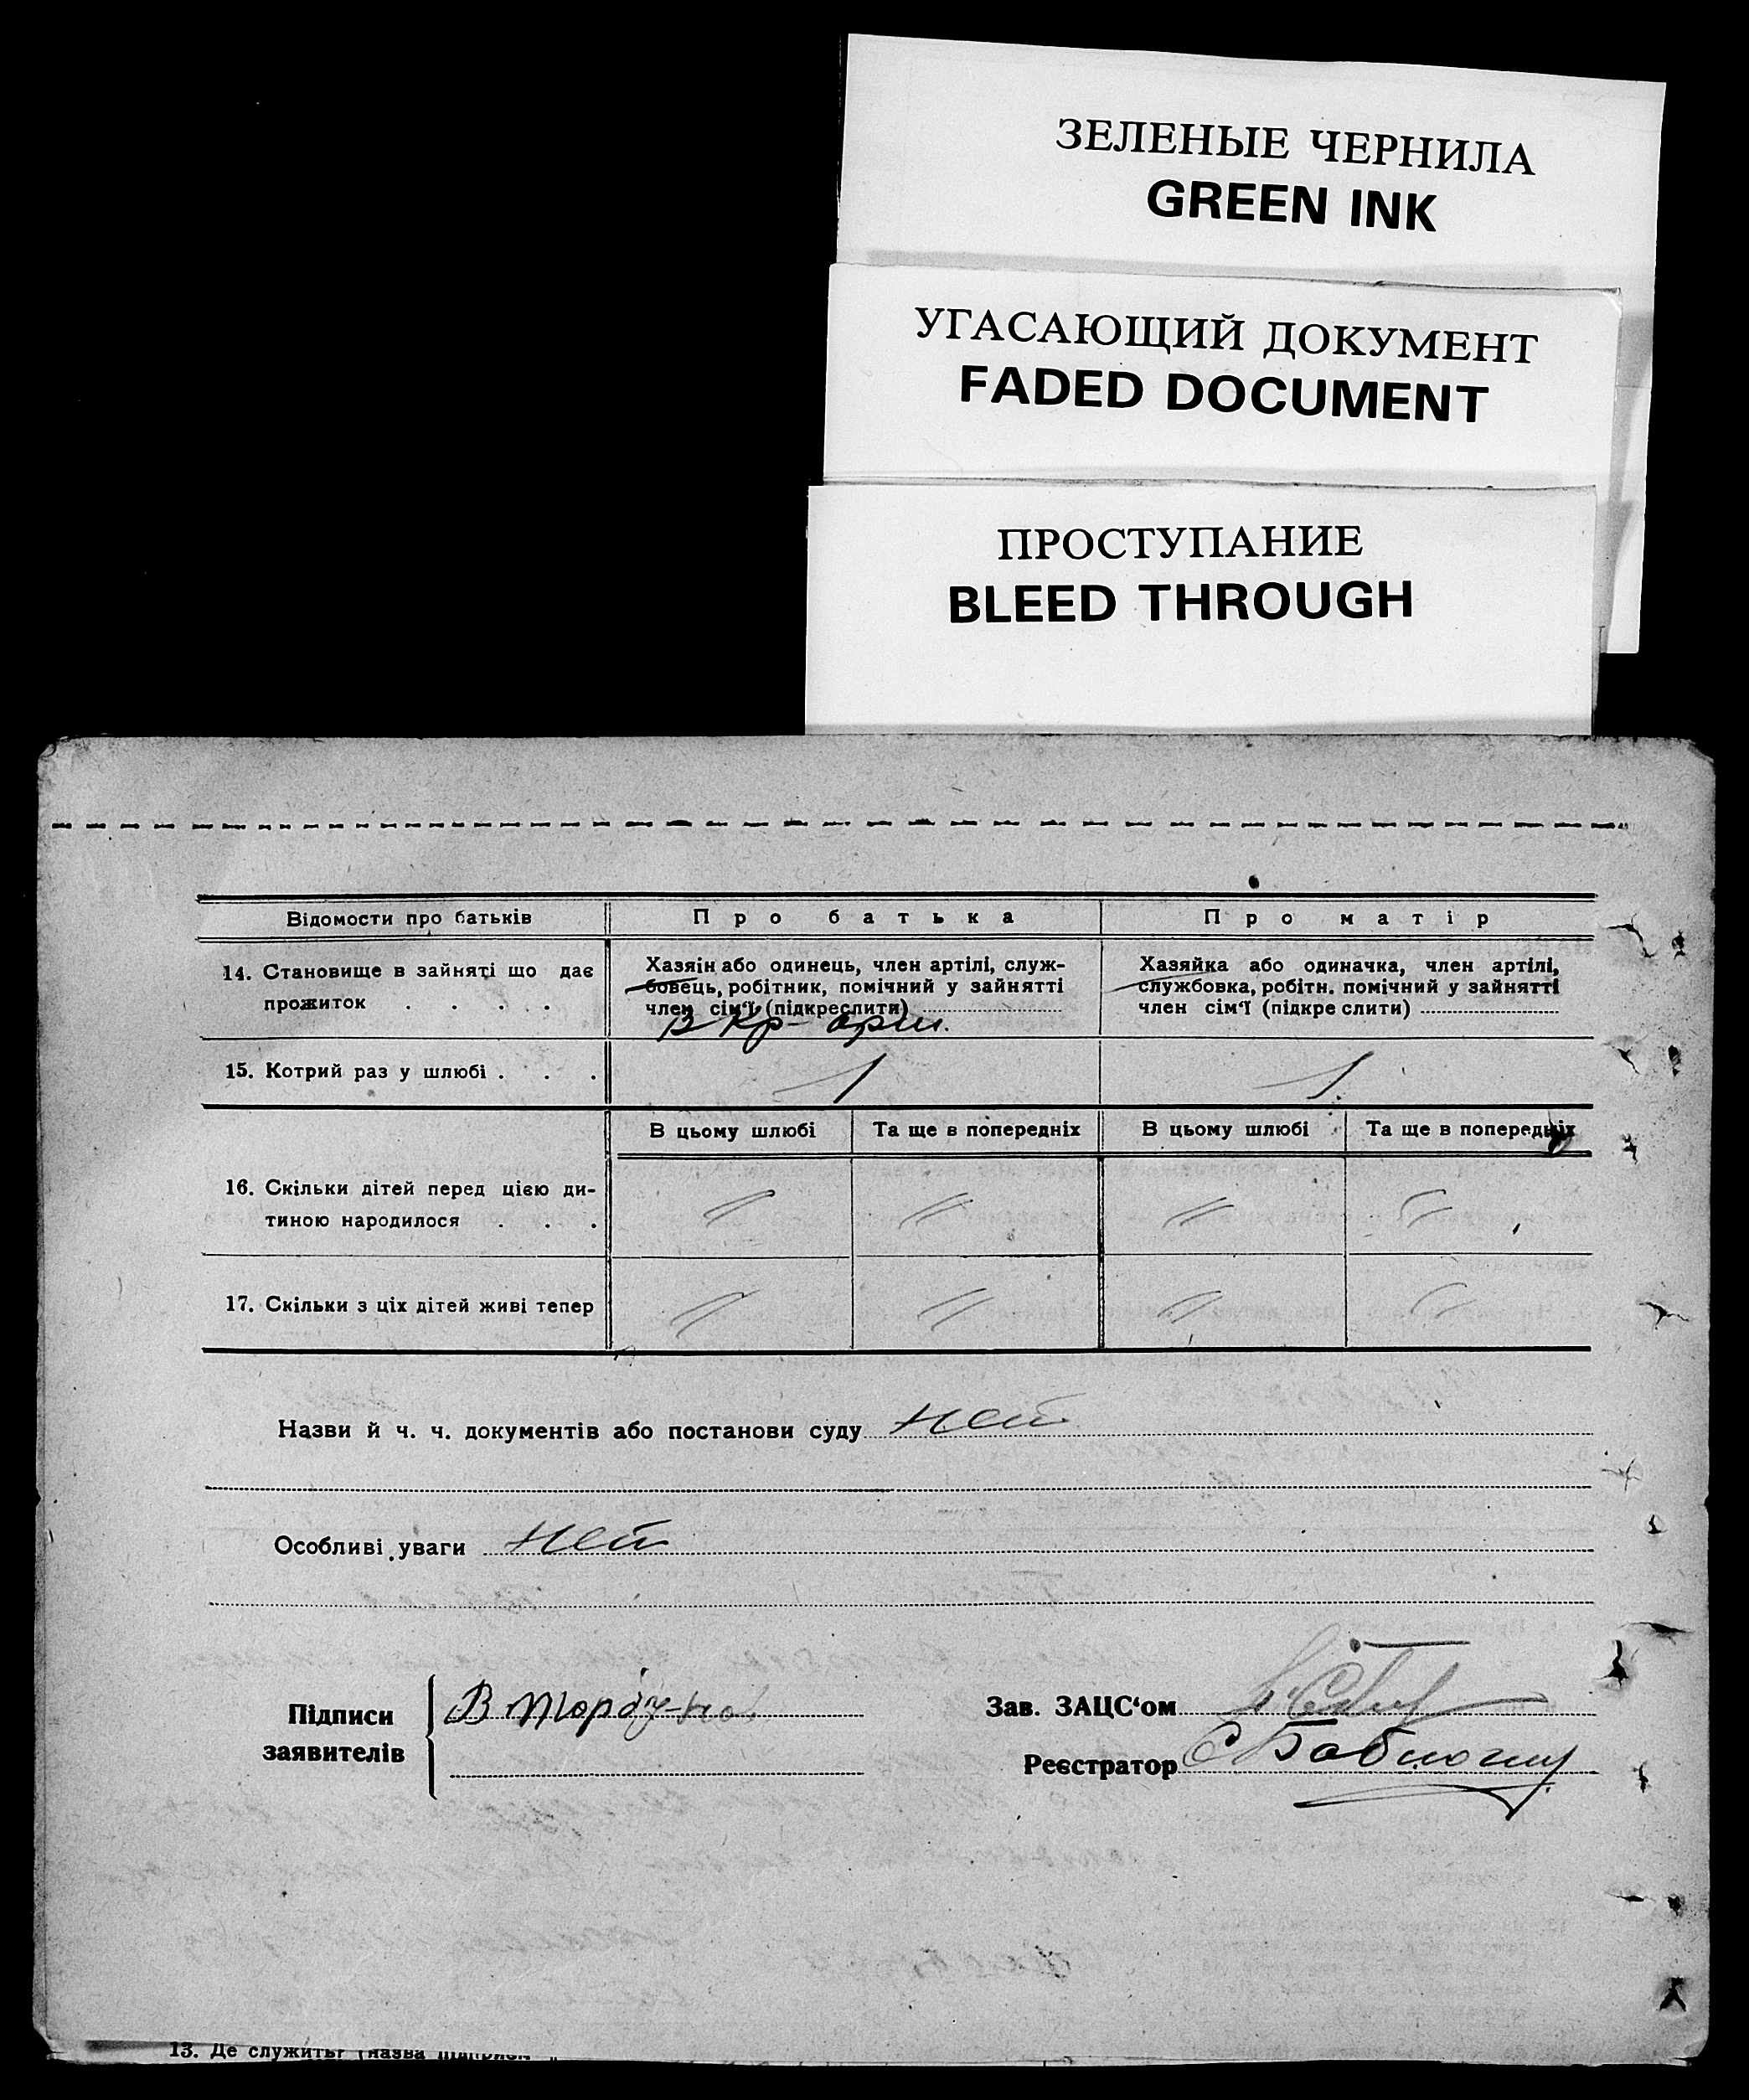 ЗЕЛЕНЫЕ ЧЕРНИЛА
GREEN INK
УГАСАЮЩИЙ ДОКУМЕНТ
FADED DOCUMENT
ПРОСТУПАНИЕ
BLEED THROUGH
Відомости про батьків Про батька Про матір
14. Становище в зайняті що дає прожиток . . . .
Хазяін або одинець, член артілі, служ-
бовець, робітник, помічний у зайнятті
член сім'ї (підкреслити)
В Кр- арм.
Хазяйка або одиначка, член артілі,
службовка, робітн. помічний у зайнятті
член сім'ї (підкреслити)
15. Котрий раз у шлюбі . . . 1 1.
В цьому шлюбі Та ще в попередніх В цьому шлюбі Та ще в попередніх
16. Скільки дітей перед цією ди-
тиною народилося . . . // // // //
17. Скільки з ціх дітей живі тепер // // // //
Назви й ч. ч. документів або постанови суду нет
Особливі уваги нет
Підписи
заявителів
Зав. ЗАЦС'ом
Реєстратор
13. Де служить (назва